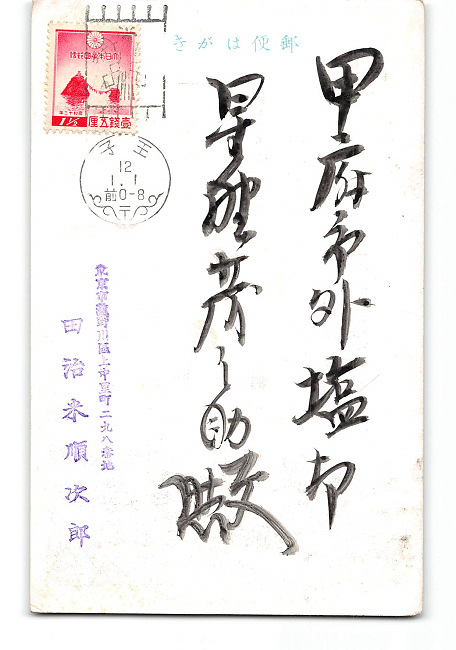 郵便はがき
大日本帝国郵便
壹錢五厘
1½
王子
12
1.1
前0-8
甲府市外塩部
星野彦之助殿
東京市瀧野川區上中里町二九八番地
田治米順次郎